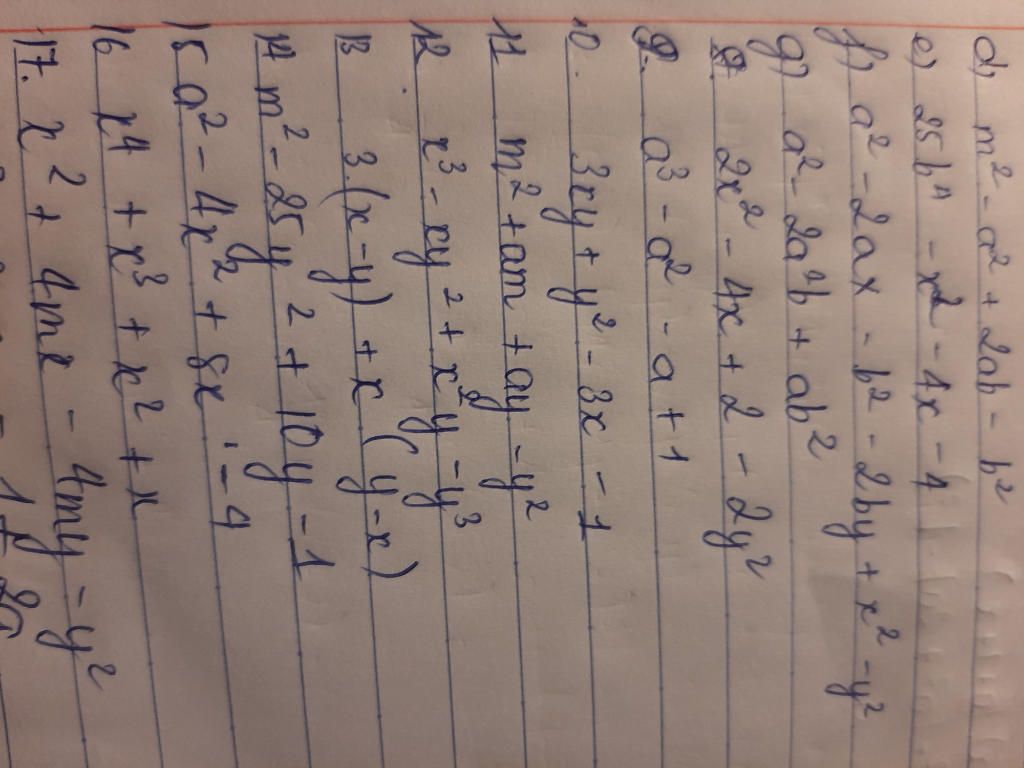 d, m² - a² + 2ab - b²
e, 25b⁴ - x² - 4x - 4
f, a² - 2ax - b² - 2by + x² - y²
g, a² - 2a²b + ab²
8. 2x² - 4x + 2 - 2y²
9. a³ - a² - a + 1
10. 3xy + y² - 3x - 1
11 m² + am + ay - y²
12 x³ - xy² + x²y - y³
13 3.(x-y) + x(y-x)
14 m² - 25y² + 10y - 1
15 a² - 4x² + 8x - 4
16 x⁴ + x³ + x² + x
17. x² + 4mx - 4my - y²